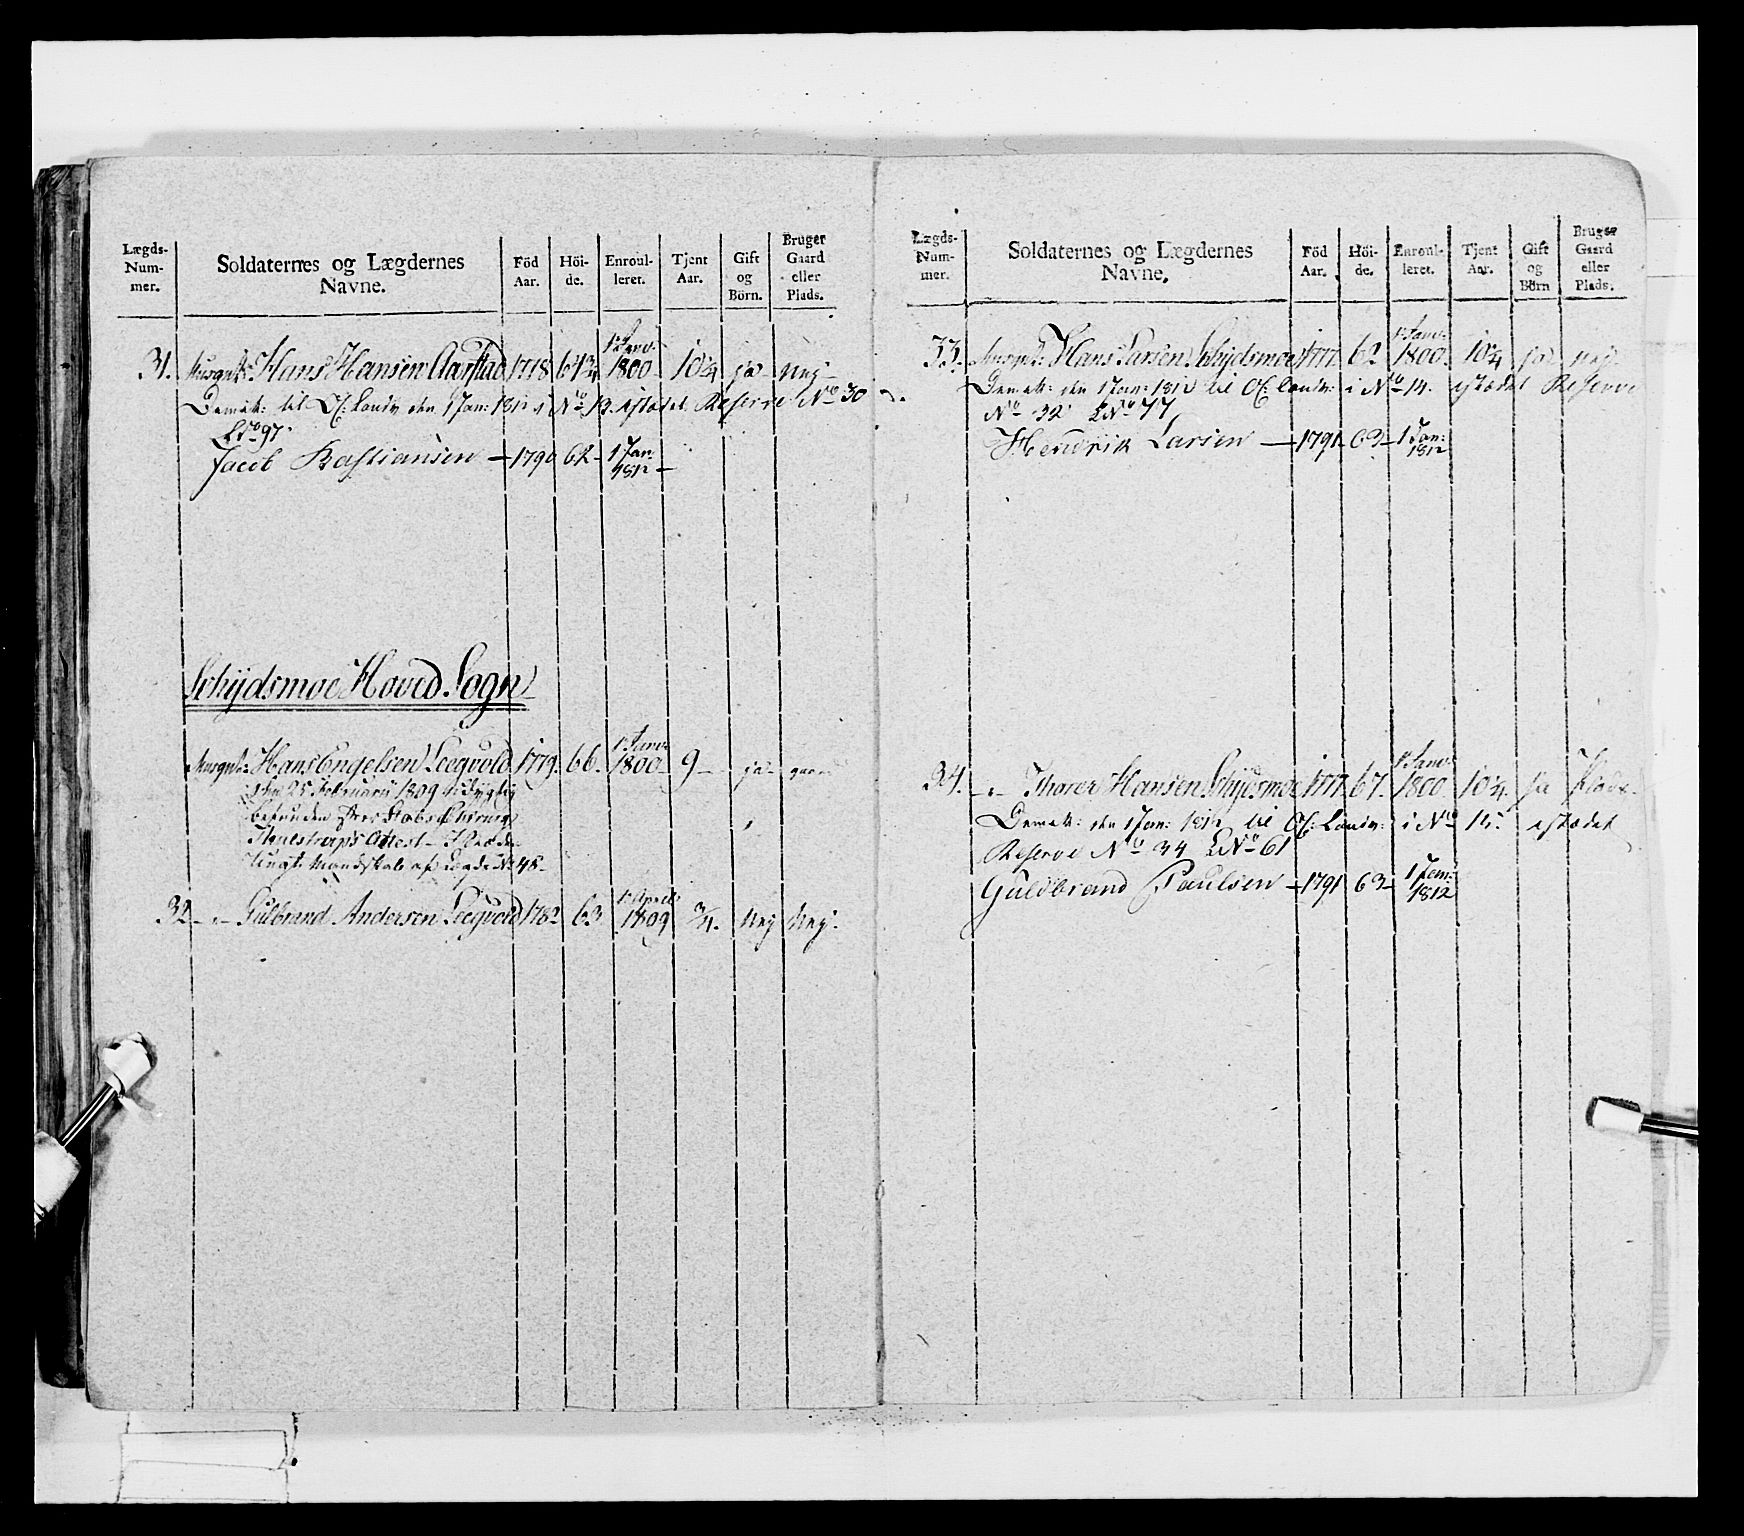 Lægds-Num-mer. Soldaternes og Lægdernes Navne. Föd Aar. Höi-de. Enroul-leret. Tjent Aar. Gift og Börn. Bruger Gaard eller Plads.
1 Janv:
31. Musqut: Hans Hansen Aarstad 1778 64 3/4 1800 10 1/4 ja Nej
Demit: til Af: Landv den 1 Jan: 1812 i No 13. istædet Reserve No 30
LNo 97
Jacob Bastiansen 1790 62 1 Jan 1812
Schijdsmoe Hoved Sogn
1 Janv:
Musqut: Hans Engelsen Leegvold 1779. 66. 1800 9 ja gaard
den 25 Februarii 1809 udygtig
befunden efter Stabs Chirurgi
Attest
Mandskab af Lægde No 48
1 April
32 Gulbrand Andersen Leegvold 1782 63 1809 3/4. Nej Nej.
Lægds-Num-mer. Soldaternes og Lægdernes Navne. Föd Aar. Höi-de. Enroul-leret. Tjent Aar. Gift og Börn Bruger Gaard eller Plads.
1 Janv:
33. Musqut: Hans Larsen Schijdsmoe 1777. 62 1800. 10 1/4 ja Nej
Demit: den 1 Jan: 1812 til Af: Landv: i No 14. istædet Reserve
No 32 LNo 77
Hendrik Larsen 1791 63 1 Jan: 1812
1 Janv:
34. Thorer Hansen Schijdsmoe 1777. 67. 1800. 10 1/4. ja Plads
Demit: den 1 Jan: 1812 til Af: Landv: i No 15. istædet
Reserve No 34 LNo 61
Guldbrand Paulsen 1791 63 1 Jan: 1812